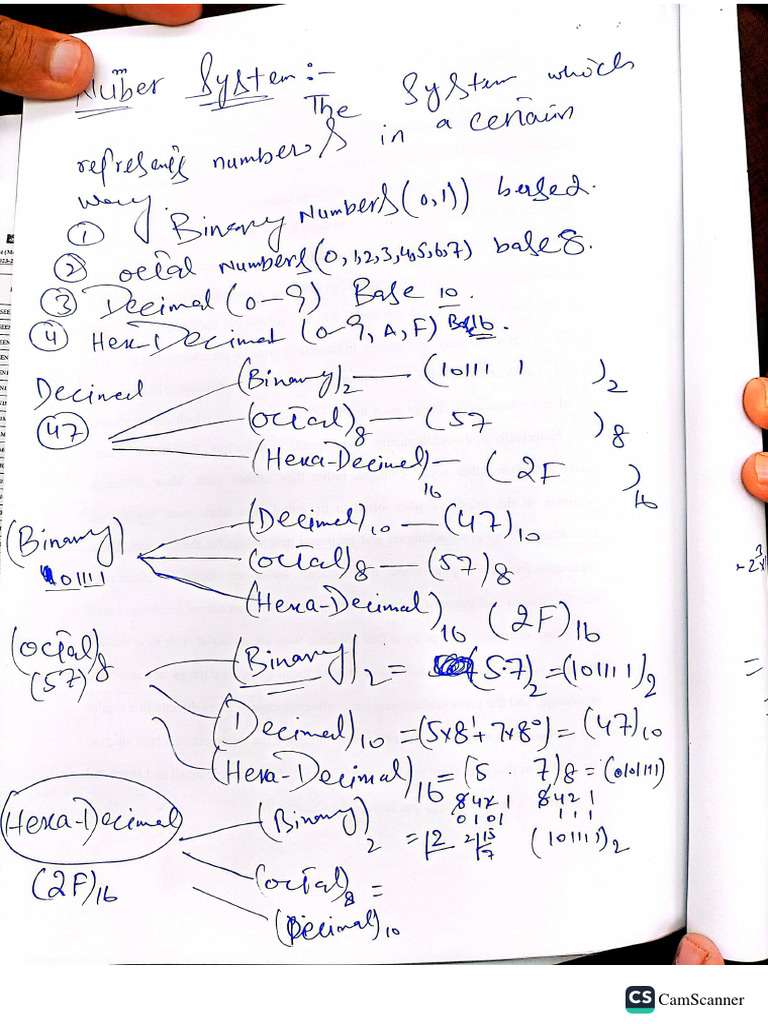 Nuber System:-
m
The System which
represents numbers in a certain
way
① Binary Numbers (0,1)) base2.
② octal Numbers (0,1,2,3,4,5,6,7) base 8.
③ Decimal (0-9) Base 10.
④ Hexa-Decimal (0-9, A, F) Base16.
Decimal
47
(Binary)2 — (101111)2
(Octal)8 — (57)8
(Hexa-Decimal)16 — (2F)16
(Binary)
101111
(Decimal)10 — (47)10
(octal)8 — (57)8
(Hexa-Decimal)16 (2F)16
(octal)8
(57)
(Binary)2 = (5.7)2 = (101111)2
(Decimal)10 = (5x8¹+7x8⁰) = (47)10
(Hexa-Decimal)16 = (5 . 7)8 = (0101111)
8421 8421
0101 111
Hexa-Decimal
(2F)16
(Binary)2 = (101111)2
(octal)8 =
(Decimal)10
CS CamScanner